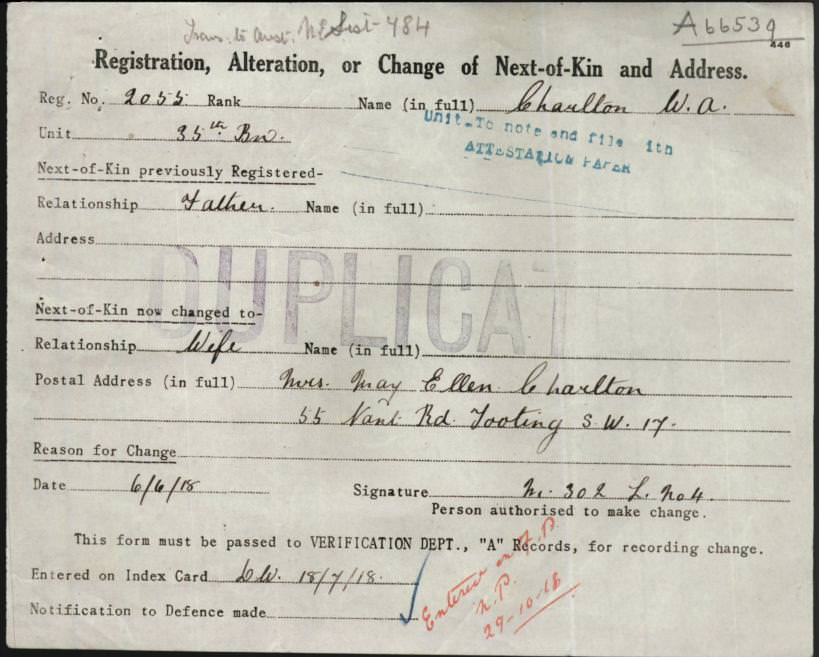 Trans. to Aust. N.E. List - 484
A66539
446
Registration, Alteration, or Change of Next-of-Kin and Address.
Reg. No. 2055 Rank Name (in full) Charlton W. A.
Unit 35th Bn.
Unit - To note and file ith
ATTESTATION PAPER
Next-of-Kin previously Registered-
Relationship Father. Name (in full)
Address
DUPLICAT
Next-of-Kin now changed to-
Relationship Wife Name (in full)
Postal Address (in full) Mrs. May Ellen Charlton
55 Rd. Tooting S.W. 17.
Reason for Change
Date 6/6/18 Signature M. 302 L. No 4.
Person authorised to make change.
This form must be passed to VERIFICATION DEPT., "A" Records, for recording change.
Entered on Index Card 18/7/18.
Notification to Defence made
Entered on
N.P.
29-10-18